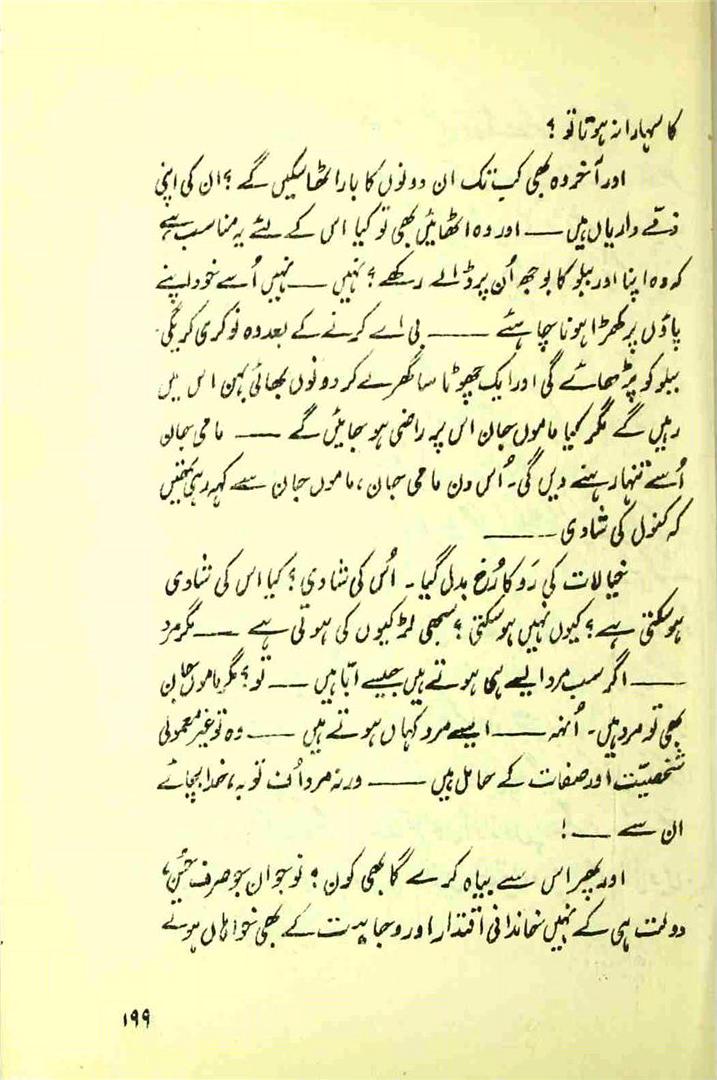 کا سہارا نہ ہوتا تو ؟
اور آخر وہ بھی کب تک ان دونوں کا بار اٹھا سکیں گے ؟ ان کی اپنی
ذمّے داریاں ہیں —— اور وہ اٹھائیں بھی تو کیا اس کے لئے یہ مناسب ہے
کہ وہ اپنا اور ببلو کا بوجھ اُن پر ڈالے رکھے ؟ نہیں —— نہیں اُسے خود اپنے
پاؤں پر کھڑا ہونا چاہئے —— بی اے کرنے کے بعد وہ نوکری کریگی۔
ببلو کو پڑھائے گی اور ایک چھوٹا سا گھر لے کر دونوں بھائی بہن اس میں
رہیں گے مگر کیا ماموں جان اس پر راضی ہو جائیں گے —— مامی جان
اُسے تنہا رہنے دیں گی۔ اُس دن مامی جان ، ماموں جان سے کہہ رہی تھیں
کہ کنول کی شادی ——
خیالات کی رَو کا رُخ بدل گیا ۔ اُس کی شادی ؟ کیا اس کی شادی
ہو سکتی ہے ؟ کیوں نہیں ہو سکتی ؟ سبھی لڑکیوں کی ہوتی ہے —— مگر مرد
—— اگر سب مرد ایسے ہی ہوتے ہیں جیسے ابّا ہیں —— تو ؟ مگر ماموں جان
بھی تو مرد ہیں۔ اُنہہ —— ایسے مرد کہاں ہوتے ہیں —— وہ تو غیر معمولی
شخصیّت اور صفات کے حامل ہیں —— ورنہ مرد اُف توبہ ، خدا بچائے
ان سے —— !
اور پھر اس سے بیاہ کرے گا بھی کون ؟ نوجوان جو صرف حُسن ،
دولت ہی کے نہیں خاندانی اقتدار اور وجاہت کے بھی خواہاں ہوتے
۱۹۹